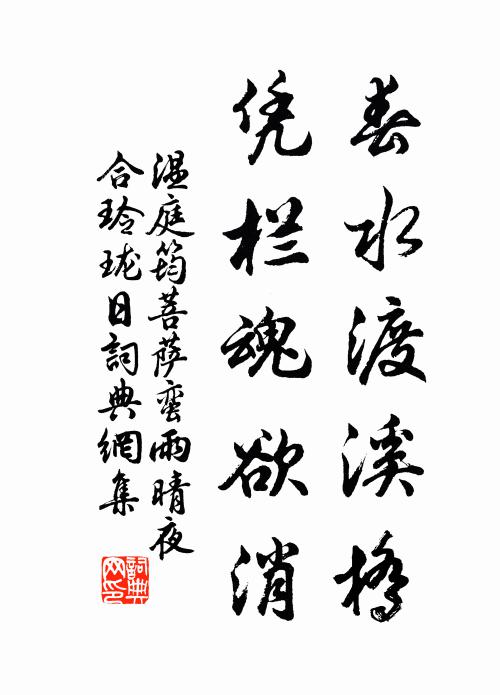 春水渡溪橋
凭栏魂欲消
温庭筠菩萨蛮雨晴夜
合玲珑日詞典網集
詞典网印